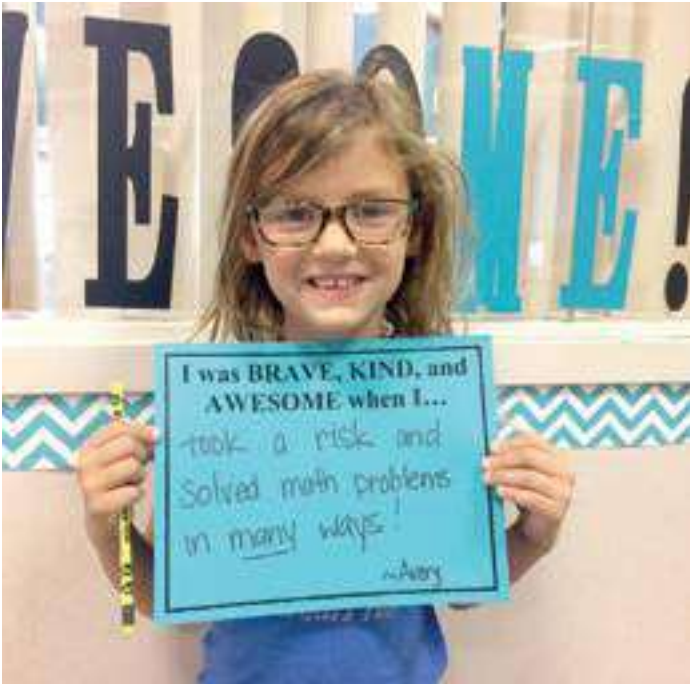 WESOME!
I was BRAVE, KIND, and
AWESOME when I...
took a risk and
solved math problems
in many ways!
~Avery